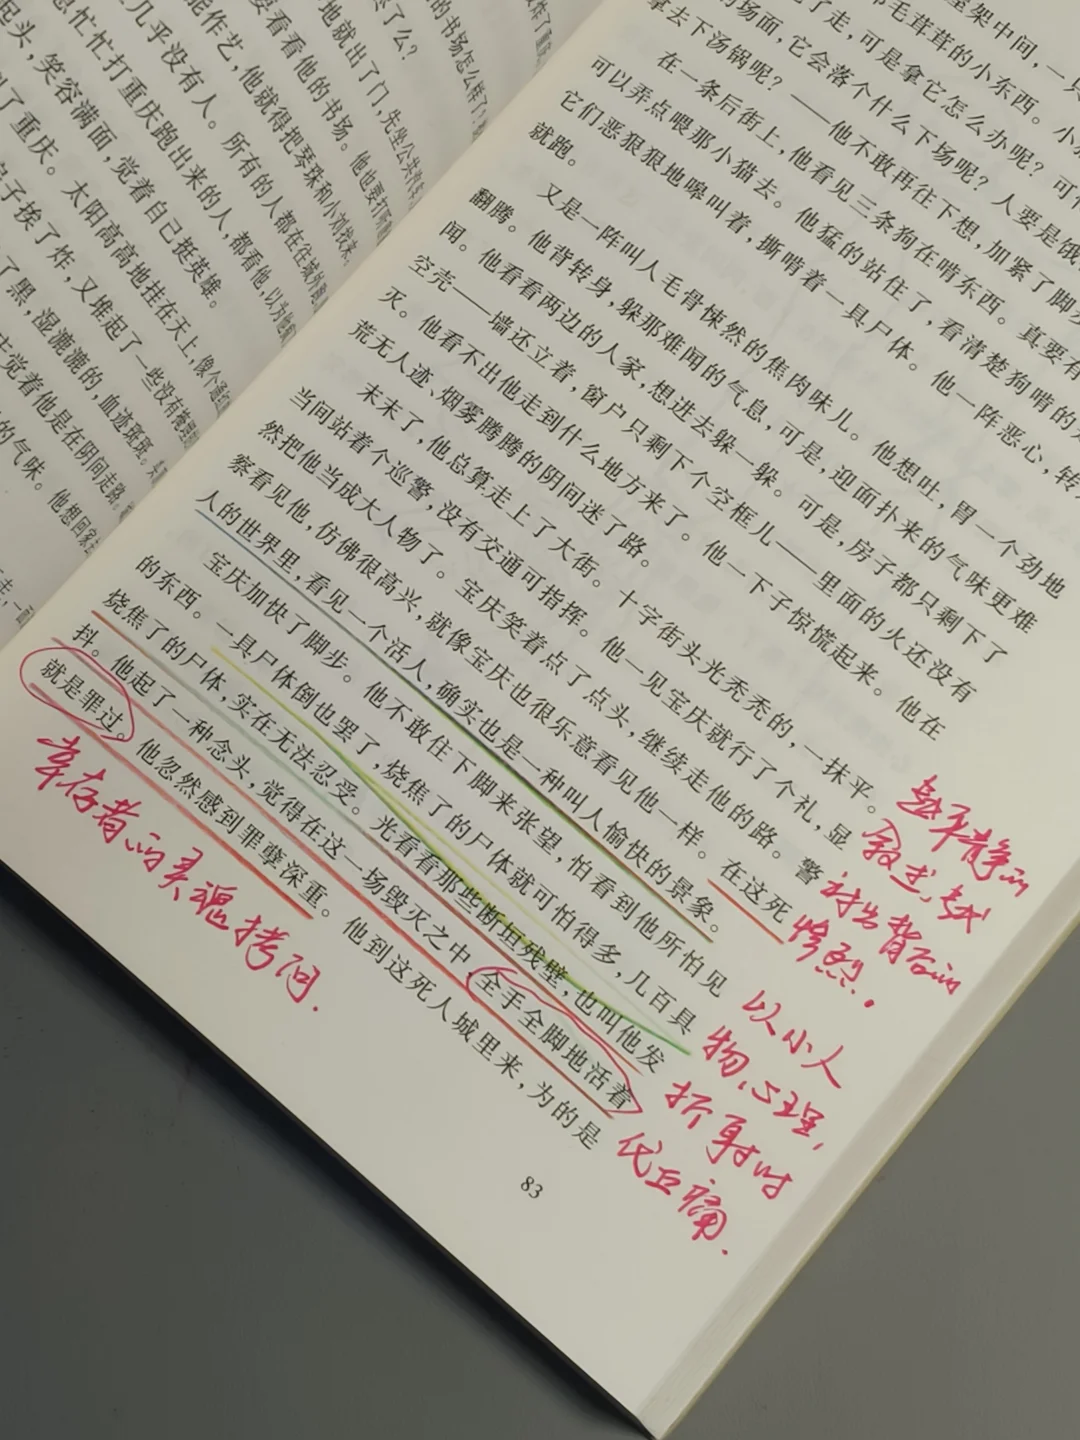 炸了重庆
的书场怎么样了？
坏了么？
地就出了门，先坐公共汽车
要看看他的书场。他也要打听
能作艺，他就得把琴珠和小刘找来，
几乎没有人。所有的人都在往城外跑
想忙忙打重庆跑出来的人，都看他，以为他
起头，笑容满面，觉着自己挺英雄。
到了重庆。太阳高高地挂在天上，像个
房子挨了炸，又堆起了一些没有掩埋
了黑，湿漉漉的，血迹斑斑。
觉着他是在阴间走路。
的气味。他想回家
架中间，一只
毛茸茸的小东西。小
了走，可是拿它怎么办呢？可
的场面，它会落个什么下场呢？人要是饿
拿去下汤锅呢？——他不敢再往下想，加紧了脚步
在一条后街上，他看见三条狗在啃东西。真要有
可以弄点喂那小猫去。他猛的站住了，看清楚狗啃的
它们恶狠狠地嗥叫着，撕啃着一具尸体。他一阵恶心，转
就跑。
又是一阵叫人毛骨悚然的焦肉味儿。他想吐，胃一个劲地
翻腾。他背转身，躲那难闻的气息，可是，迎面扑来的气味更难
闻。他看看两边的人家，想进去躲一躲。可是，房子都只剩下了
空壳——墙还立着，窗户只剩下个空框儿——里面的火还没有
灭。他看不出他走到什么地方来了。他一下子惊慌起来。他在
荒无人迹、烟雾腾腾的阴间迷了路。
末末了，他总算走上了大街。十字街头光秃秃的，一抹平。
当间站着个巡警，没有交通可指挥。他一见宝庆就行了个礼，显
然把他当成大人物了。宝庆笑着点了点头，继续走他的路。警
察看见他，仿佛很高兴，就像宝庆也很乐意看见他一样。在这死
人的世界里，看见一个活人，确实也是一种叫人愉快的景象。
宝庆加快了脚步。他不敢住下脚来张望，怕看到他所怕见
的东西。一具尸体倒也罢了，烧焦了的尸体就可怕得多，几百具
烧焦了的尸体，实在无法忍受。光看看那些断垣残壁，也叫他发
抖。他起了一种念头，觉得在这一场毁灭之中，全手全脚地活着
就是罪过。他忽然感到罪孽深重。他到这死人城里来，为的是
83
幸存者的灵魂拷问.
越平静的
叙述，越
衬出背后的
惨烈.
以小人
物心理，
折射时
代巨痛.